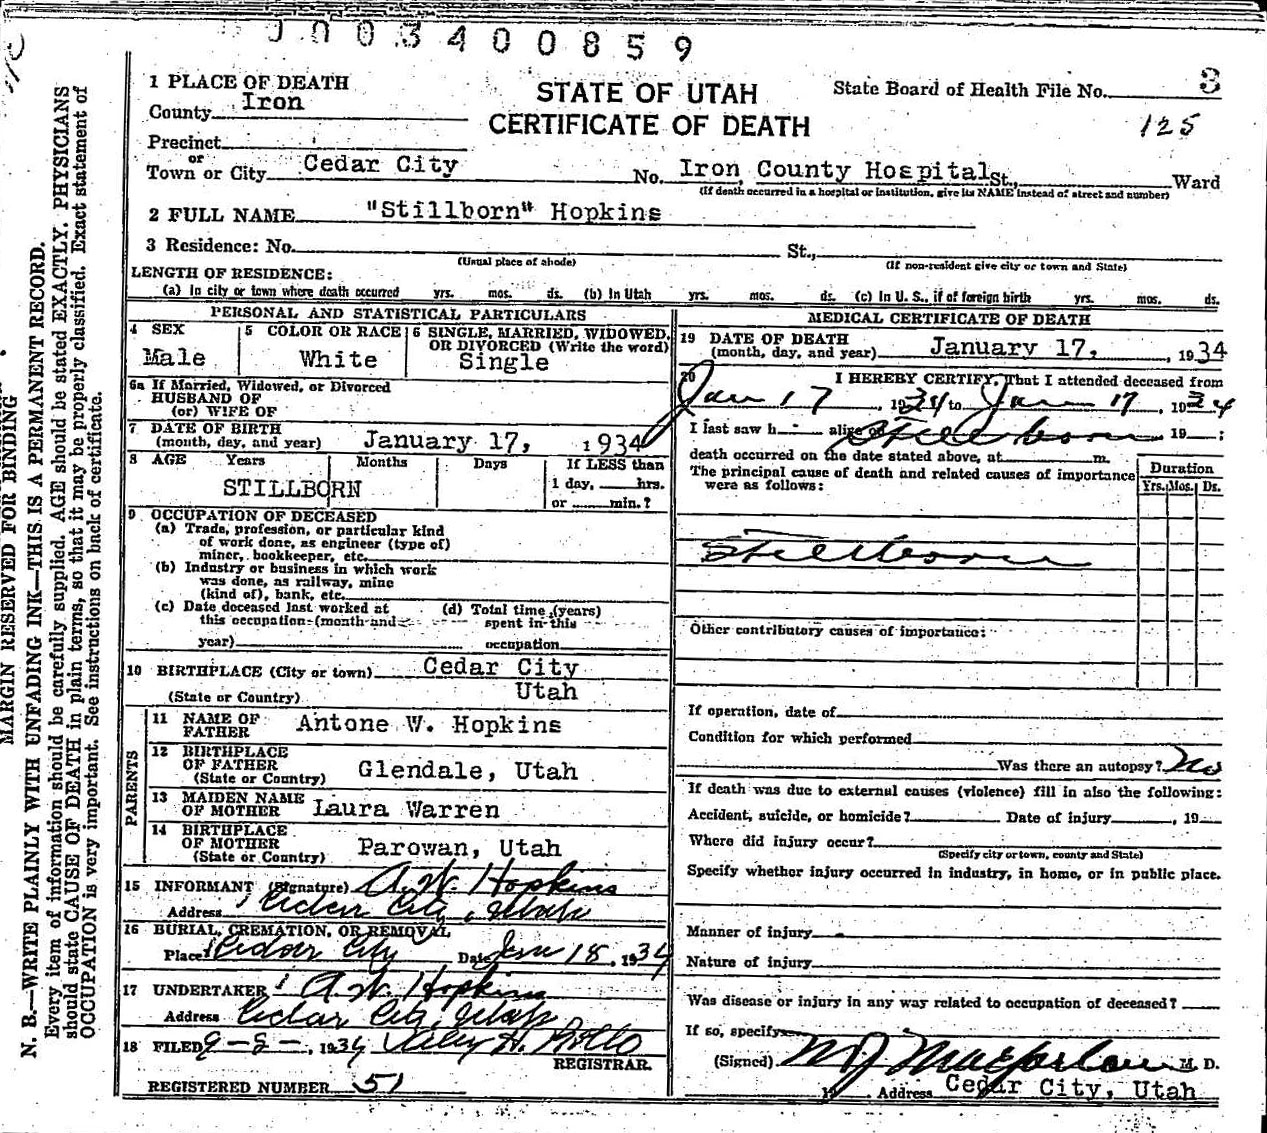 0003400859
1 PLACE OF DEATH
STATE OF UTAH
State Board of Health File No. 3
County Iron
CERTIFICATE OF DEATH
125
Precinct
or
Town or City Cedar City No. Iron County Hospital St., Ward
(If death occurred in a hospital or institution, give its NAME instead of street and number)
2 FULL NAME "Stillborn" Hopkins
3 Residence: No. St.,
(Usual place of abode) (If non-resident give city or town and State)
LENGTH OF RESIDENCE:
(a) In city or town where death occurred yrs. mos. ds. (b) In Utah yrs. mos. ds. (c) In U. S., if of foreign birth yrs. mos. ds.
PERSONAL AND STATISTICAL PARTICULARS
4 SEX
Male
5 COLOR OR RACE
White
6 SINGLE, MARRIED, WIDOWED,
OR DIVORCED (Write the word)
Single
6a If Married, Widowed, or Divorced
HUSBAND OF
(or) WIFE OF
7 DATE OF BIRTH
(month, day, and year) January 17, 1934
8 AGE Years Months Days If LESS than
1 day, hrs.
STILLBORN
or min.?
9 OCCUPATION OF DECEASED
(a) Trade, profession, or particular kind
of work done, as engineer (type of)
miner, bookkeeper, etc.
(b) Industry or business in which work
was done, as railway, mine
(kind of), bank, etc.
(c) Date deceased last worked at (d) Total time (years)
this occupation (month and spent in this
year) occupation
10 BIRTHPLACE (City or town) Cedar City
(State or Country) Utah
PARENTS
11 NAME OF
FATHER Antone W. Hopkins
12 BIRTHPLACE
OF FATHER
(State or Country) Glendale, Utah
13 MAIDEN NAME
OF MOTHER Laura Warren
14 BIRTHPLACE
OF MOTHER
(State or Country) Parowan, Utah
15 INFORMANT (Signature) A. W. Hopkins
Address Cedar City, Utah
16 BURIAL, CREMATION, OR REMOVAL
Place Cedar City Date Jan 18, 1934
17 UNDERTAKER A. W. Hopkins
Address Cedar City, Utah
18 FILED 9-2-, 1934
REGISTRAR.
REGISTERED NUMBER 51
MEDICAL CERTIFICATE OF DEATH
19 DATE OF DEATH
(month, day, and year) January 17, , 1934
20 I HEREBY CERTIFY, That I attended deceased from
Jan 17, 1934 to Jan 17, 1934
I last saw h alive on Stillborn, 19 ;
death occurred on the date stated above, at m.
The principal cause of death and related causes of importance
were as follows:
Duration
Yrs. Mos. Ds.
Stillborn
Other contributory causes of importance:
If operation, date of
Condition for which performed
Was there an autopsy? No
If death was due to external causes (violence) fill in also the following:
Accident, suicide, or homicide? Date of injury , 19
Where did injury occur?
(Specify city or town, county and State)
Specify whether injury occurred in industry, in home, or in public place.
Manner of injury
Nature of injury
Was disease or injury in any way related to occupation of deceased?
If so, specify
(Signed) Macfarlane M. D.
19 Address Cedar City, Utah
MARGIN RESERVED FOR BINDING
N. B.—WRITE PLAINLY WITH UNFADING INK—THIS IS A PERMANENT RECORD.
Every item of information should be carefully supplied. AGE should be stated EXACTLY. PHYSICIANS
should state CAUSE OF DEATH in plain terms, so that it may be properly classified. Exact statement of
OCCUPATION is very important. See instructions on back of certificate.